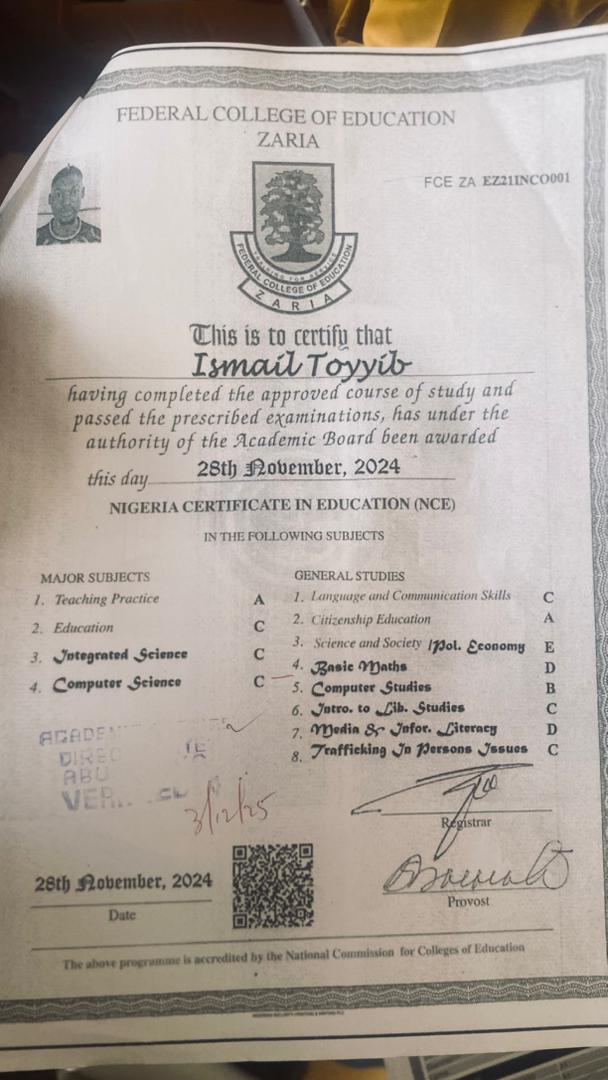 FEDERAL COLLEGE OF EDUCATION
ZARIA
FCE ZA EZ21INCO001
TRAINING FOR SERVICE
FEDERAL COLLEGE OF EDUCATION
ZARIA
This is to certify that
Ismail Toyyib
having completed the approved course of study and
passed the prescribed examinations, has under the
authority of the Academic Board been awarded
this day 28th November, 2024
NIGERIA CERTIFICATE IN EDUCATION (NCE)
IN THE FOLLOWING SUBJECTS
MAJOR SUBJECTS
1. Teaching Practice A
2. Education C
3. Integrated Science C
4. Computer Science C
GENERAL STUDIES
1. Language and Communication Skills C
2. Citizenship Education A
3. Science and Society /Pol. Economy E
4. Basic Maths D
5. Computer Studies B
6. Intro. to Lib. Studies C
7. Media & Infor. Literacy D
8. Trafficking In Persons Issues C
ABU
3/12/25
Registrar
28th November, 2024
Date
Provost
The above programme is accredited by the National Commission for Colleges of Education